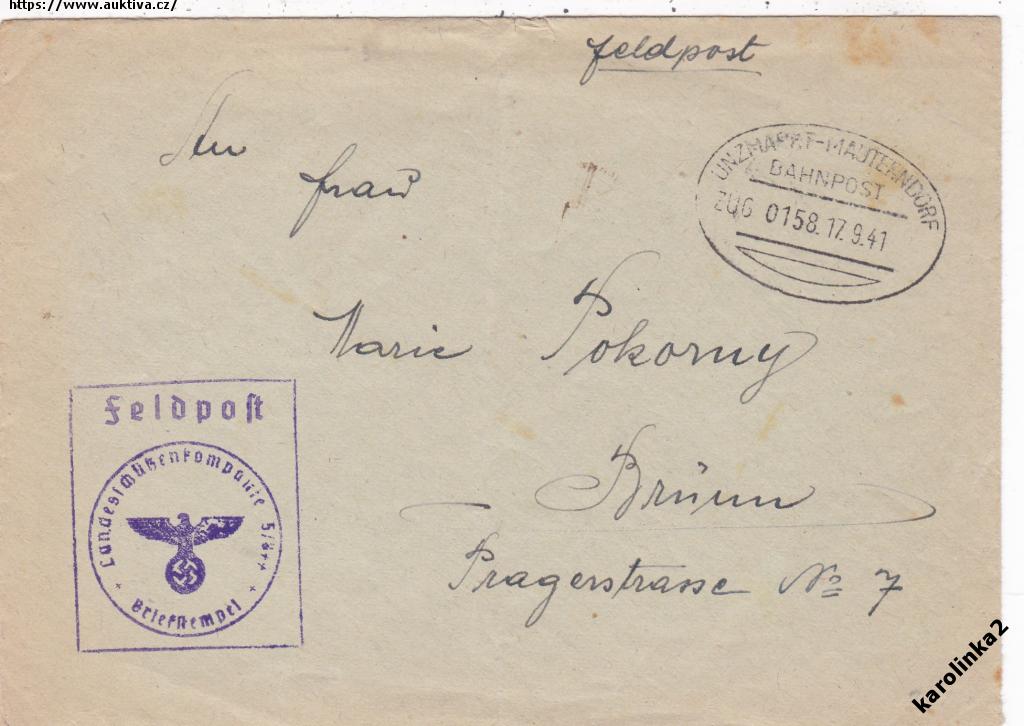 https://www.auktiva.cz/
feldpost
An
frau
UNZMARKT-MAUTERNDORF
BAHNPOST
ZUG 0158. 17.9.41
Marie Pokorny
Brünn
Pragerstrasse No 7
Feldpost
Landesschützenkompanie
Briefstempel
karolinka2